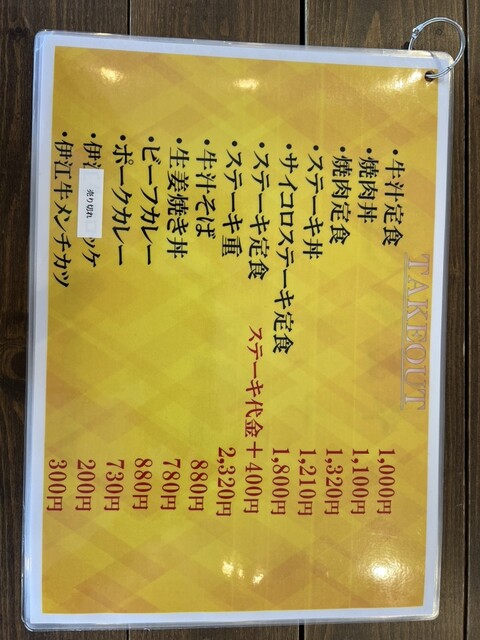 TAKEOUT
・牛汁定食 1,000円
・焼肉丼 1,100円
・焼肉定食 1,320円
・ステーキ丼 1,210円
・サイコロステーキ定食 1,800円
・ステーキ定食 ステーキ代金＋400円
・ステーキ重 2,320円
・牛汁そば 880円
・生姜焼き丼 780円
・ビーフカレー 880円
・ポークカレー 730円
・伊江 売り切れ ッケ 200円
・伊江牛メンチカツ 300円